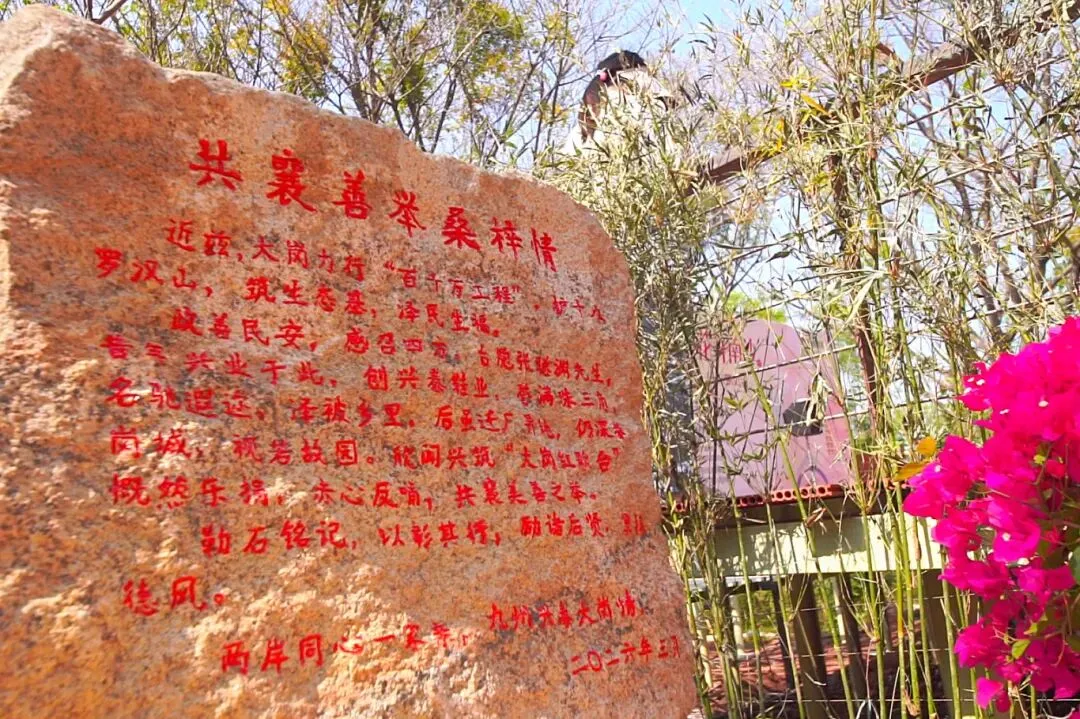 共襄善举桑梓情
近兹，大岗力行“百千万工程”，护十九
罗汉山，筑生态基，泽民生福。
政善民安，感召四方，台胞张聪渊先生，
昔年兴业于此，创兴泰鞋业，誉满珠三角，
名驰遐迩，泽被乡里，后虽迁厂，仍深
岗城，视若故园。欣闻兴筑“大岗红台”
慨然乐捐，赤心反哺，共襄美善之举。
勒石铭记，以彰其情，励诸后贤，
德风。
两岸同心一家亲，九州共享大岗情
二〇二六年三月